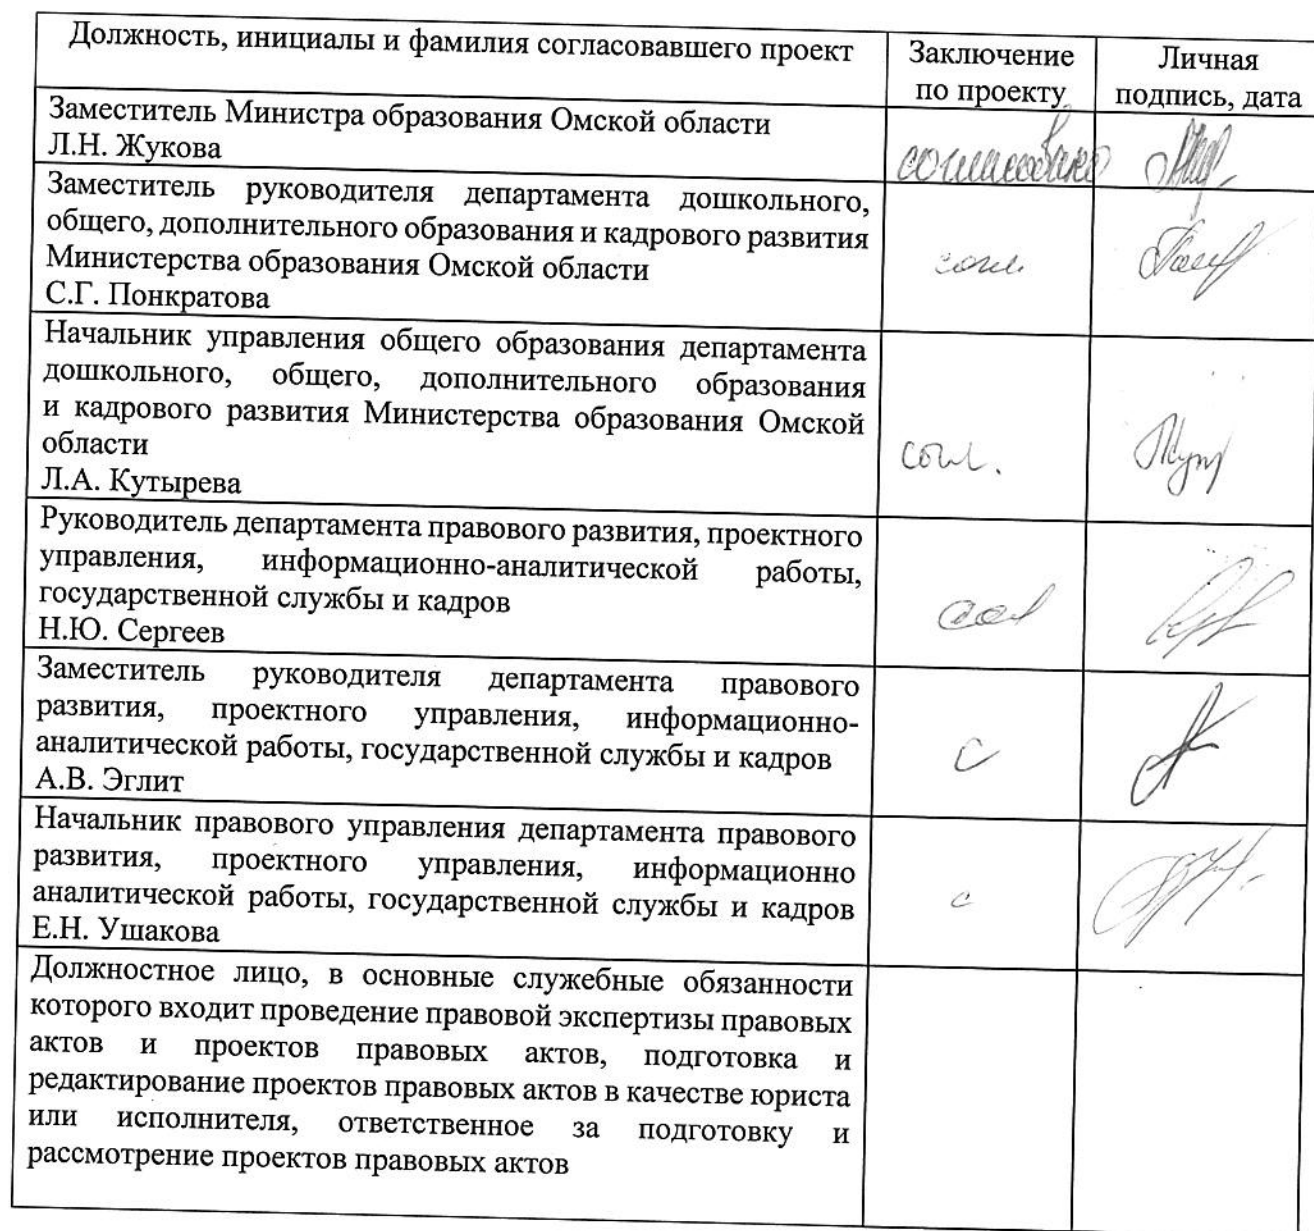 Должность, инициалы и фамилия согласовавшего проект
Заключение
по проекту
Личная
подпись, дата
Заместитель Министра образования Омской области
Л.Н. Жукова
согласовано
Заместитель руководителя департамента дошкольного,
общего, дополнительного образования и кадрового развития
Министерства образования Омской области
С.Г. Понкратова
согл.
Начальник управления общего образования департамента
дошкольного, общего, дополнительного образования
и кадрового развития Министерства образования Омской
области
Л.А. Кутырева
согл.
Руководитель департамента правового развития, проектного
управления, информационно-аналитической работы,
государственной службы и кадров
Н.Ю. Сергеев
Заместитель руководителя департамента правового
развития, проектного управления, информационно-
аналитической работы, государственной службы и кадров
А.В. Эглит
с
Начальник правового управления департамента правового
развития, проектного управления, информационно
аналитической работы, государственной службы и кадров
Е.Н. Ушакова
с
Должностное лицо, в основные служебные обязанности
которого входит проведение правовой экспертизы правовых
актов и проектов правовых актов, подготовка и
редактирование проектов правовых актов в качестве юриста
или исполнителя, ответственное за подготовку и
рассмотрение проектов правовых актов